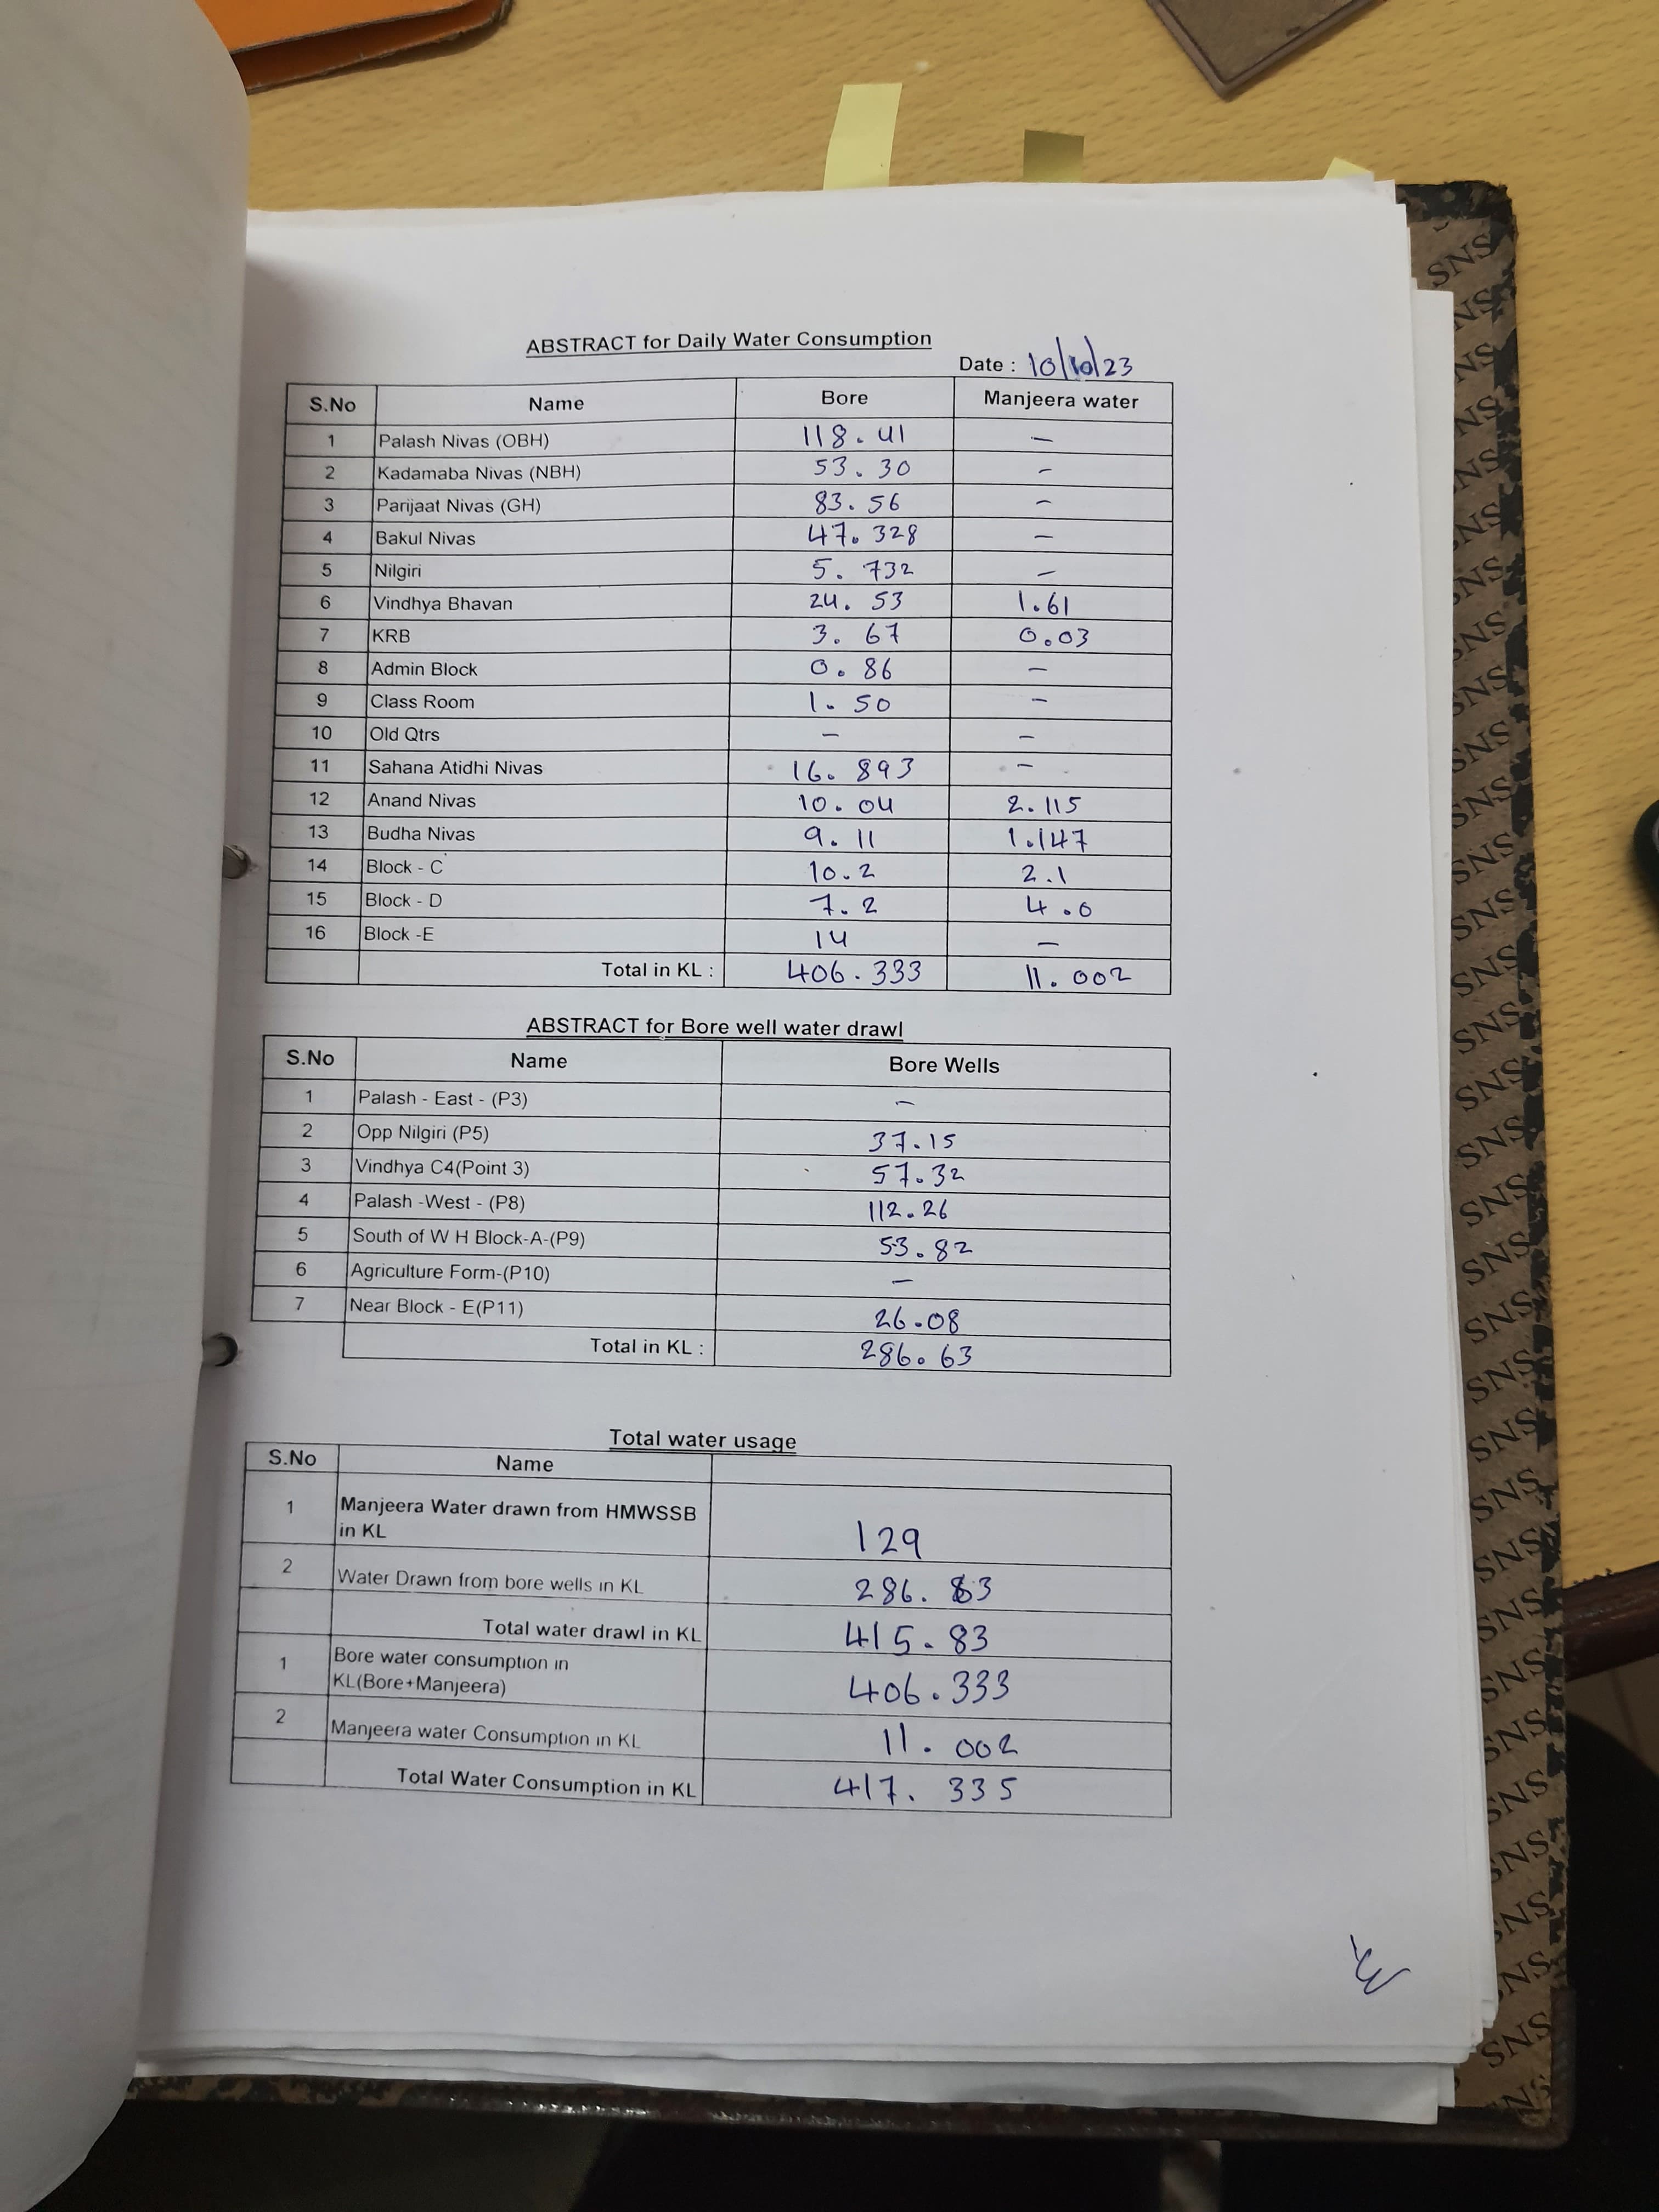 ABSTRACT for Daily Water Consumption
Date : 10/10/23
S.No Name Bore Manjeera water
1 Palash Nivas (OBH) 118.41 –
2 Kadamaba Nivas (NBH) 53.30 –
3 Parijaat Nivas (GH) 83.56 –
4 Bakul Nivas 47.328 –
5 Nilgiri 5.732 –
6 Vindhya Bhavan 24.53 1.61
7 KRB 3.67 0.03
8 Admin Block 0.86 –
9 Class Room 1.50 –
10 Old Qtrs – –
11 Sahana Atidhi Nivas 16.893 –
12 Anand Nivas 10.04 2.115
13 Budha Nivas 9.11 1.147
14 Block - C 10.2 2.1
15 Block - D 7.2 4.0
16 Block -E 14 –
Total in KL : 406.333 11.002
ABSTRACT for Bore well water drawl
S.No Name Bore Wells
1 Palash - East - (P3) –
2 Opp Nilgiri (P5) 37.15
3 Vindhya C4(Point 3) 57.32
4 Palash -West - (P8) 112.26
5 South of W H Block-A-(P9) 53.82
6 Agriculture Form-(P10) –
7 Near Block - E(P11) 26.08
Total in KL : 286.63
Total water usage
S.No Name
1 Manjeera Water drawn from HMWSSB
in KL 129
2 Water Drawn from bore wells in KL 286.83
Total water drawl in KL 415.83
1 Bore water consumption in
KL(Bore+Manjeera) 406.333
2 Manjeera water Consumption in KL 11.002
Total Water Consumption in KL 417.335
SNS